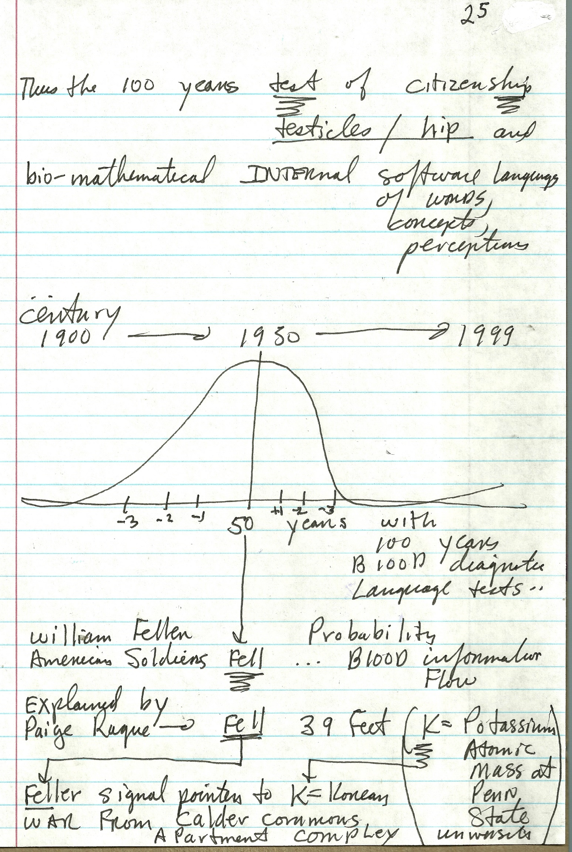 25
Thus the 100 years test of citizenship
testicles / hip and
bio-mathematical INTERNAL software language
of words,
concepts,
perceptions
century
1900 → 1950 → 1999
-3 -2 -1 50 years +1 -2 -3
with
100 years
B100D diagnostic
Language tests..
William Feller Probability
American Soldiers Fell ... B100D information
Flow
Explained by
Paige Ruque → Fell 39 Feet (K= Potassium
Atomic
Mass at
Penn,
State
university)
Feller signal pointer to K= Korean
WAR From Calder commons,
Apartment complex